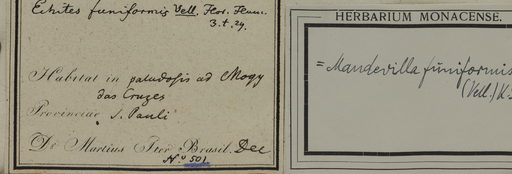 Echites funiformis Vell. Flor. Flum.
3. t. 29.
Habitat in paludosis ad Mogy
das Cruzes
Provinciae S. Pauli
De Martius Iter Brasil. Dec
No 501
HERBARIUM MONACENSE.
= Mandevilla funiformis
(Vell.) K.